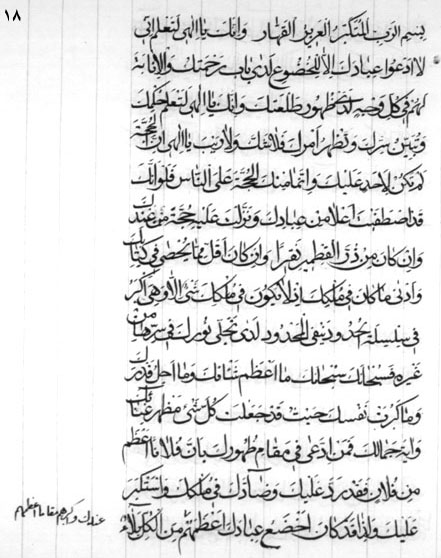 ١٨
بسم الرب المتكبر العزيز القهار وانك يا الهى لتعلم انى
لا ادعوا عبادك الا للخضوع لدى باب رحمتك والانابة
لهم فى كل وجه لدى ظهور طلعتك وانك يا الهى لتعلم حكمك
وتبين سرك وتظهر امرك فلا شك ولا ريب يا الهى ان الحجة
لم تكن لاحد عليك وانما منك الحجة على الناس فلو انك
قد اصطفيت اعلا من عبادك ونزلت عليه حجة من عندك
وان كان من ذو القطمير نقيرا وان كان اقل مما يحصى فى كتابك
وادنى ما كان فى ملكك اذ لا يكون فى ملكك شى الا وهى اكبر
فى سلسلة الحدود بنفى المحدود لدى تجلى نورك فى سرها من
غيره فسبحانك سبحانك ما اعظم شانك وما اجل قدرتك
وما اكرم نفسك حيث قد جعلت كل شى مظهر عنايتك
واية جمالك فمن ادعى فى مقام ظهورك بان فلانا اعظم
من فلان فقد رد عليك وضادك فى ملكك واستكبر
عليك واذا قد كان اخضع عبادك اعظمهم من الكل
عندك واكرمهم مقاما